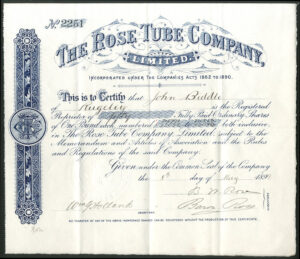 No. 2251
THE ROSE TUBE COMPANY,
LIMITED.
INCORPORATED UNDER THE COMPANIES ACTS 1862 TO 1890.
This is to Certify that John Biddle
of Rugeley is the Registered
Proprietor of Fully Paid Ordinary Shares
of One Pound each, numbered to inclusive
in The Rose Tube Company, Limited, subject to the
Memorandum and Articles of Association and the Rules
and Regulations of the said Company.
Given under the Common Seal of the Company
the day of May 189
SECRETARY.
NO TRANSFER OF ANY OF THE ABOVE MENTIONED SHARES CAN BE REGISTERED WITHOUT THE PRODUCTION OF THIS CERTIFICATE.